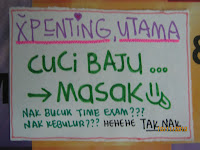 XPENTING, UTAMA
CUCI BAJU ...
→ MASAK!!
NAK BUCUK TIME EXAM???
NAK KEBULUR??? HEHEHE TAK NAK